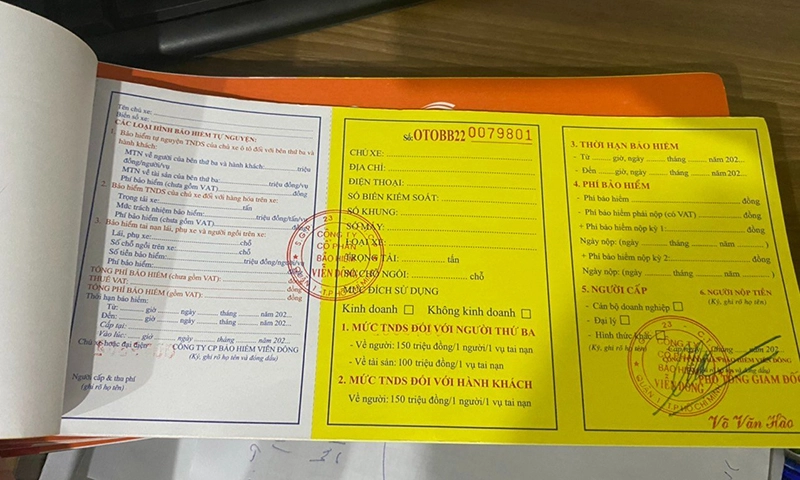 Tên chủ xe:
Biển số xe:
CÁC LOẠI HÌNH BẢO HIỂM TỰ NGUYỆN:
1. Bảo hiểm tự nguyện TNDS của chủ xe ô tô đối với bên thứ ba và
hành khách:
MTN về người của bên thứ ba và hành khách: triệu
đồng/người/vụ
MTN về tài sản của bên thứ ba: triệu đồng/vụ
Phí bảo hiểm (chưa gồm VAT): đồng
2. Bảo hiểm TNDS của chủ xe đối với hàng hóa trên xe:
Trọng tải: tấn
Mức trách nhiệm bảo hiểm: triệu đồng/tấn/vụ
Phí bảo hiểm (chưa gồm VAT): đồng
3. Bảo hiểm tai nạn lái, phụ xe và người ngồi trên xe:
Lái, phụ xe: chỗ
Số chỗ ngồi trên xe: chỗ
Số tiền bảo hiểm: triệu đồng/người/vụ
Phí bảo hiểm: đồng
TỔNG PHÍ BẢO HIỂM (chưa gồm VAT): đồng
THUẾ VAT: đồng
TỔNG PHÍ BẢO HIỂM (gồm VAT): đồng
Thời hạn bảo hiểm:
Từ: giờ ngày tháng năm 202...
Đến: giờ ngày tháng năm 202...
Cấp tại:
Vào lúc: giờ, ngày tháng năm 202...
Chủ xe hoặc đại diện CÔNG TY CP BẢO HIỂM VIỄN ĐÔNG
(Ký, ghi rõ họ tên và đóng dấu)
Người cấp & thu phí
(ghi rõ họ tên)
Số: OTOBB22 0079801
CHỦ XE:
ĐỊA CHỈ:
ĐIỆN THOẠI:
SỐ BIỂN KIỂM SOÁT:
SỐ KHUNG:
SỐ MÁY:
LOẠI XE:
TRỌNG TẢI: tấn
SỐ CHỖ NGỒI: chỗ
MỤC ĐÍCH SỬ DỤNG
Kinh doanh Không kinh doanh
1. MỨC TNDS ĐỐI VỚI NGƯỜI THỨ BA
- Về người: 150 triệu đồng/1 người/1 vụ tai nạn
- Về tài sản: 100 triệu đồng/1 vụ tai nạn
2. MỨC TNDS ĐỐI VỚI HÀNH KHÁCH
Về người: 150 triệu đồng/1 người/1 vụ tai nạn
CÔNG TY
CỔ PHẦN
BẢO HIỂM
VIỄN ĐÔNG
3. THỜI HẠN BẢO HIỂM
- Từ giờ, ngày tháng năm 202...
- Đến giờ, ngày tháng năm 202...
4. PHÍ BẢO HIỂM
- Phí bảo hiểm đồng
- Phí bảo hiểm phải nộp (có VAT) đồng
+ Phí bảo hiểm nộp kỳ 1: đồng
Ngày nộp: (ngày tháng năm )
+ Phí bảo hiểm nộp kỳ 2: đồng
Ngày nộp: (ngày tháng năm )
5. NGƯỜI CẤP 6. NGƯỜI NỘP TIỀN
(Ký, ghi rõ họ tên)
- Cán bộ doanh nghiệp
- Đại lý
- Hình thức khác
(Ký, ghi rõ họ tên)
năm 202...
VIỄN ĐÔNG
QUẬN 1 - T.P HỒ CHÍ MINH
PHÓ TỔNG GIÁM ĐỐC
Võ Văn Hào